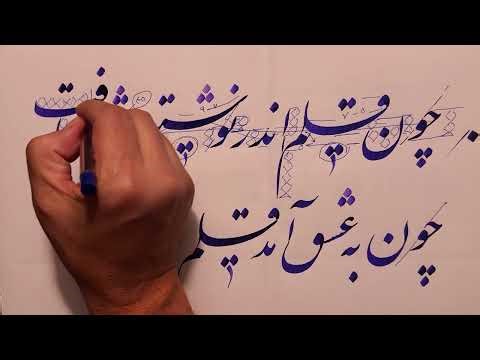 چون قلم اندر نوشتن
چون به عشق آمد قلم